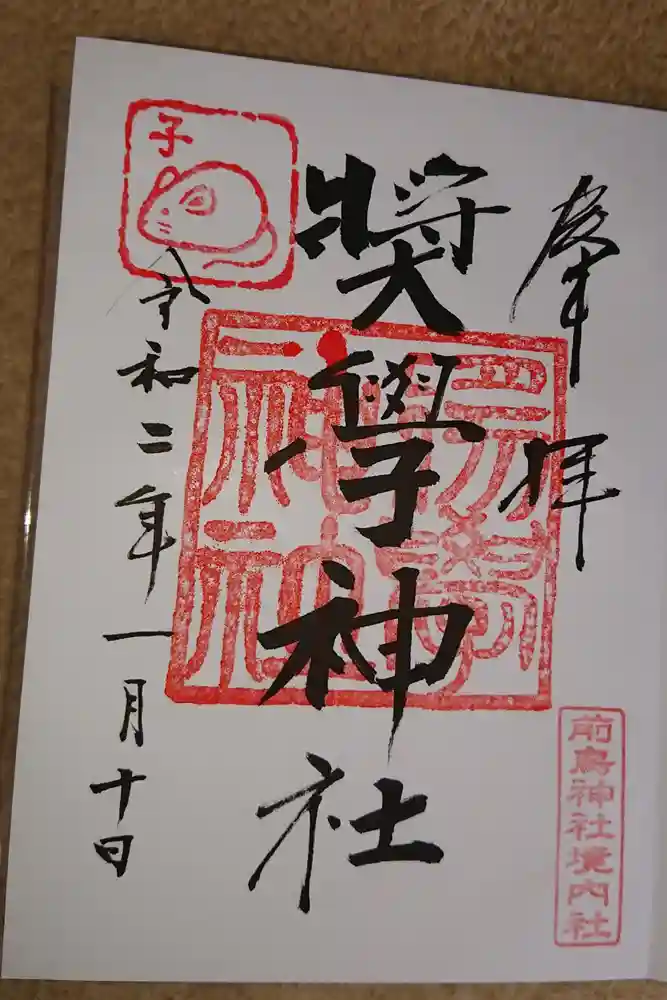 奉拝
奨學神社
令和二年一月十日
子
前鳥神社境内社